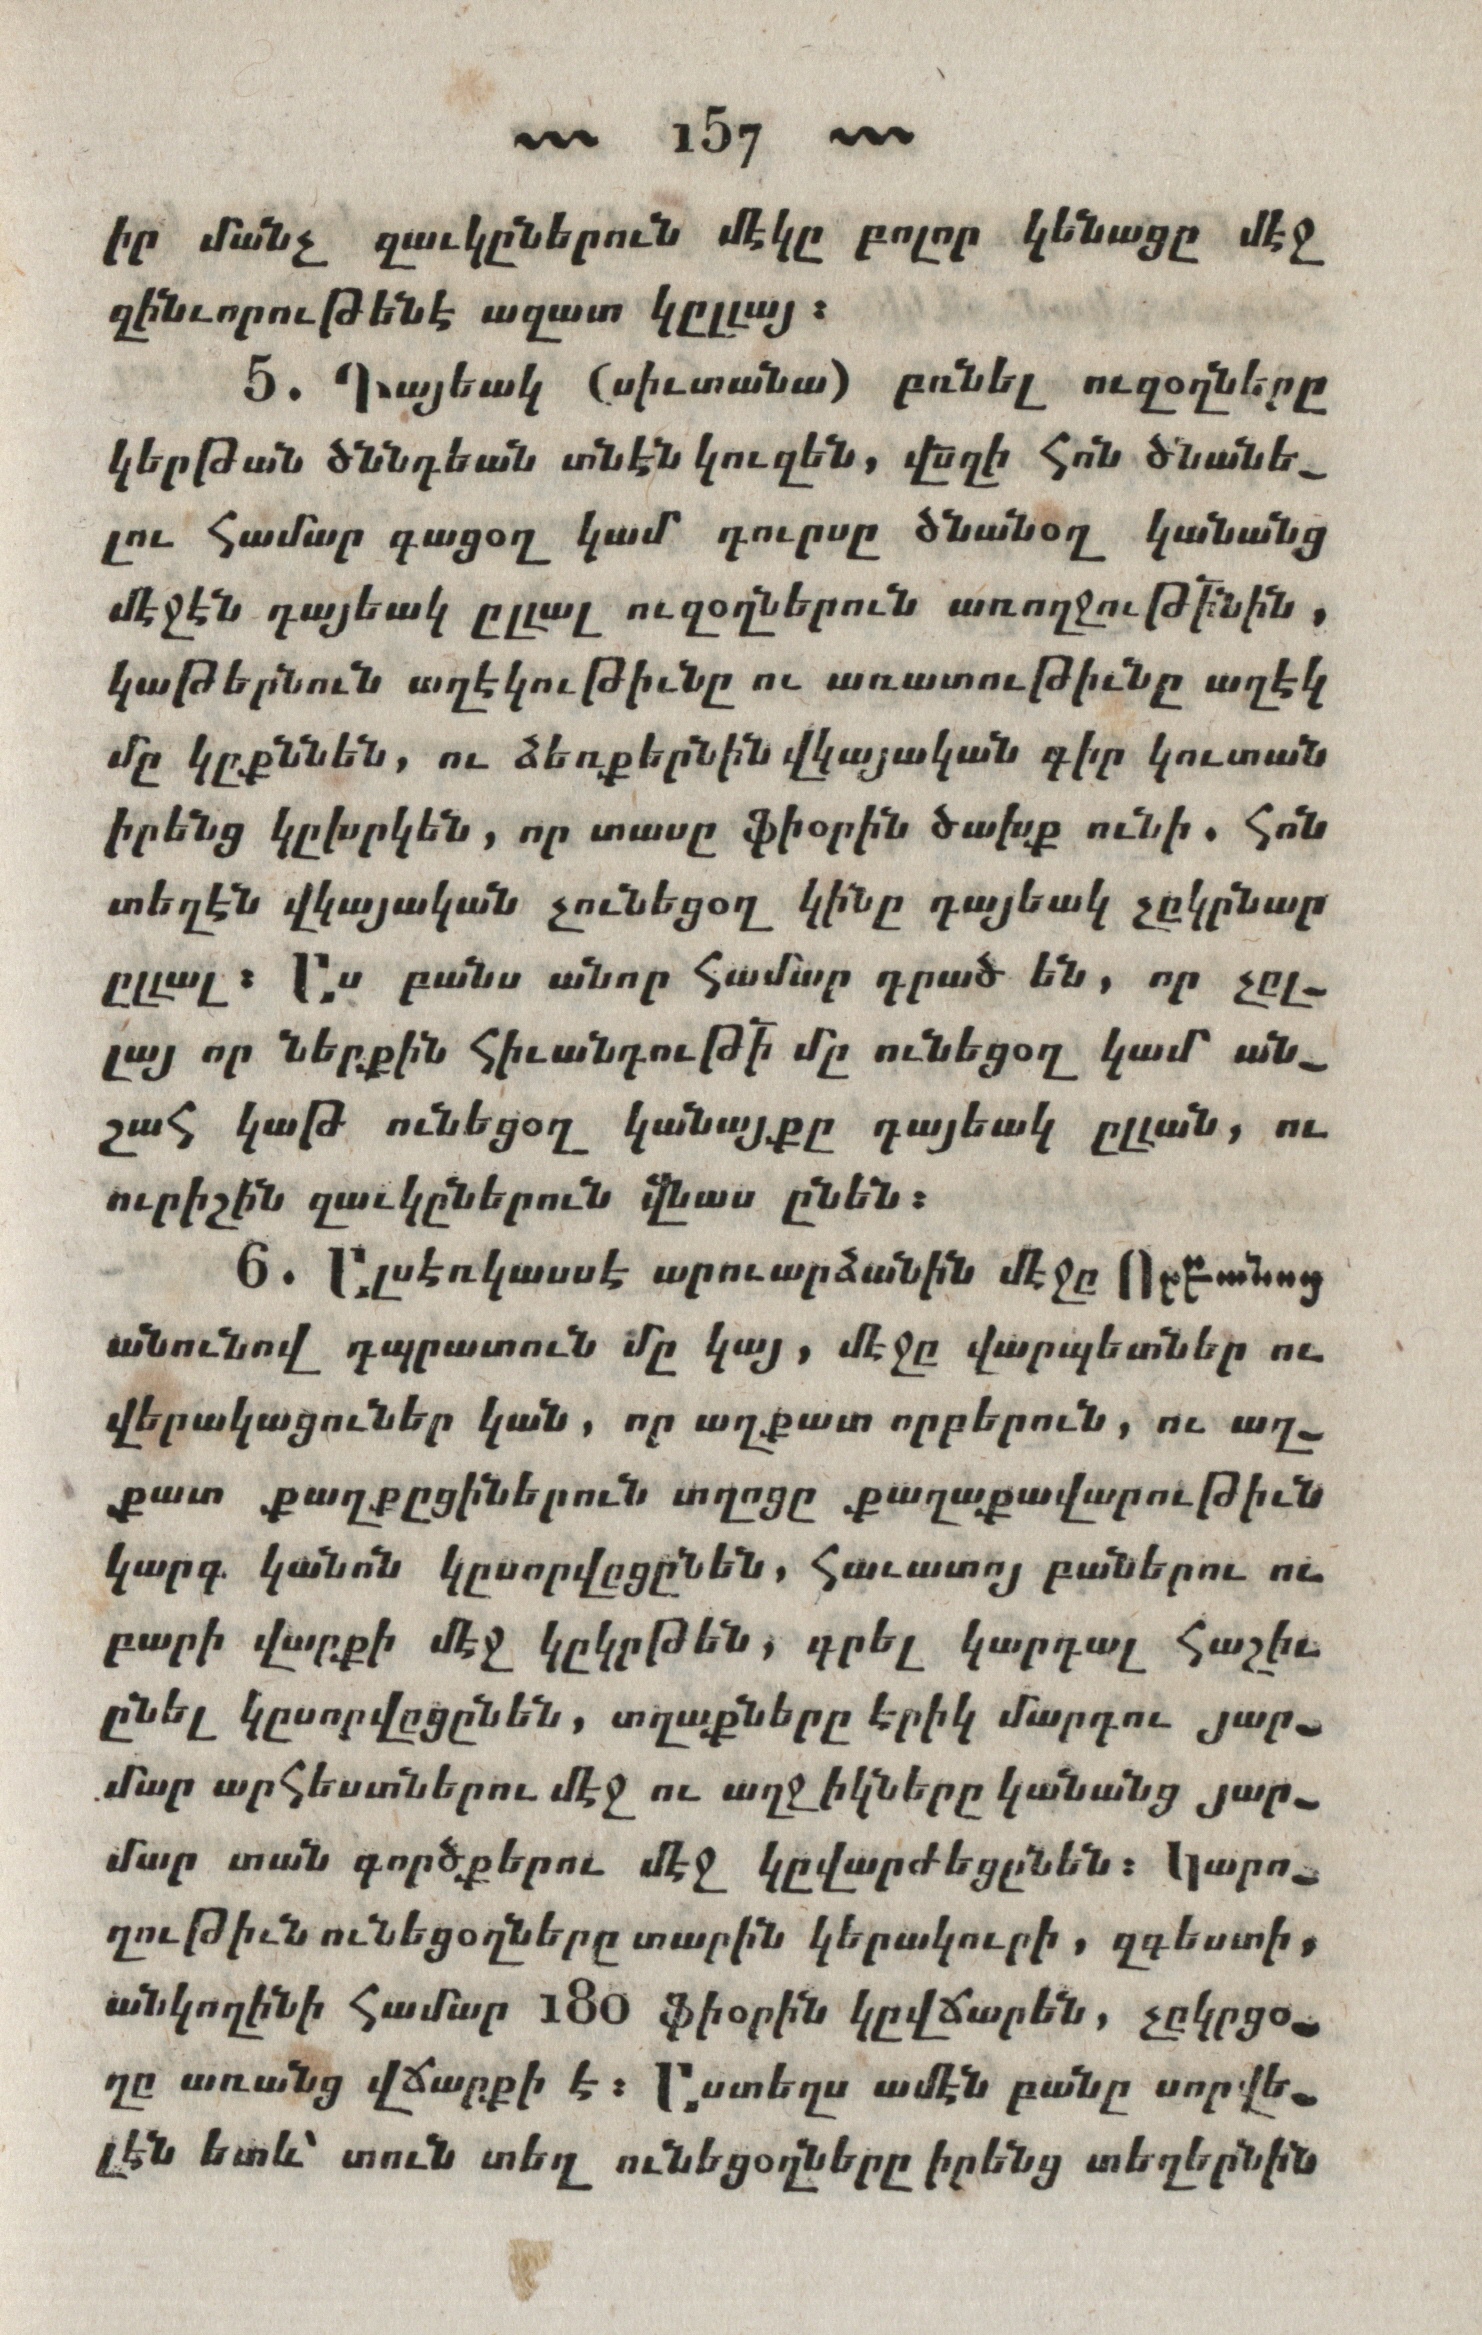 157
իր մանչ զաւկըներուն մէկը բոլոր կենացը մէջ
զինւորութենէ ազատ կըլլայ։
5. Դայեակ (սիւտանա) բռնել ուզօղները
կերթան ծննդեան տնէն կուզեն, վս՟զի հոն ծնանե֊
լու համար գացօղ կամ դուրսը ծնանօղ կանանց
մէջէն դայեակ ըլլալ ուզօղներուն առողջութե՟նին,
կաթերնուն աղէկութիւնը ու առատութիւնը աղէկ
մը կըքննեն, ու ձեռքերնին վկայական գիր կուտան
իրենց կըխրկեն, որ տասը ֆիօրին ծախք ունի. հոն
տեղէն վկայական չունեցօղ կինը դայեակ չըկրնար
ըլլալ։ Ըս բանս անոր համար դրած են, որ չըլ֊
լայ որ ներքին հիւանդութի՟ մը ունեցօղ կամ ան֊
շահ կաթ ունեցօղ կանայքը դայեակ ըլլան, ու
ուրիշին զաւկըներուն վնաս ընեն։
6. Ըլսէռկասսէ արուարձանին մէջը Որբանոց
անունով դպրատուն մը կայ, մէջը վարպետներ ու
վերակացուներ կան, որ աղքատ որբերուն, ու աղ֊
քատ քաղքըցիներուն տղոցը քաղաքավարութիւն
կարգ կանոն կըսորվըցընեն, հաւատոյ բաներու ու
բարի վարքի մէջ կըկրթեն, գրել կարդալ հաշիւ
ընել կըսորվըցընեն, տղաքները էրիկ մարդու յար֊
մար արհեստներու մէջ ու աղջիկները կանանց յար֊
մար տան գործքերու մէջ կըվարժեցընեն։ Կարո֊
ղութիւն ունեցօղները տարին կերակուրի, զգեստի,
անկողինի համար 180 ֆիօրին կըվճարեն, չըկրցօ֊
ղը առանց վճարքի է։ Ըստեղս ամէն բանը սորվե֊
լէն ետև՝ տուն տեղ ունեցօղները իրենց տեղերնին